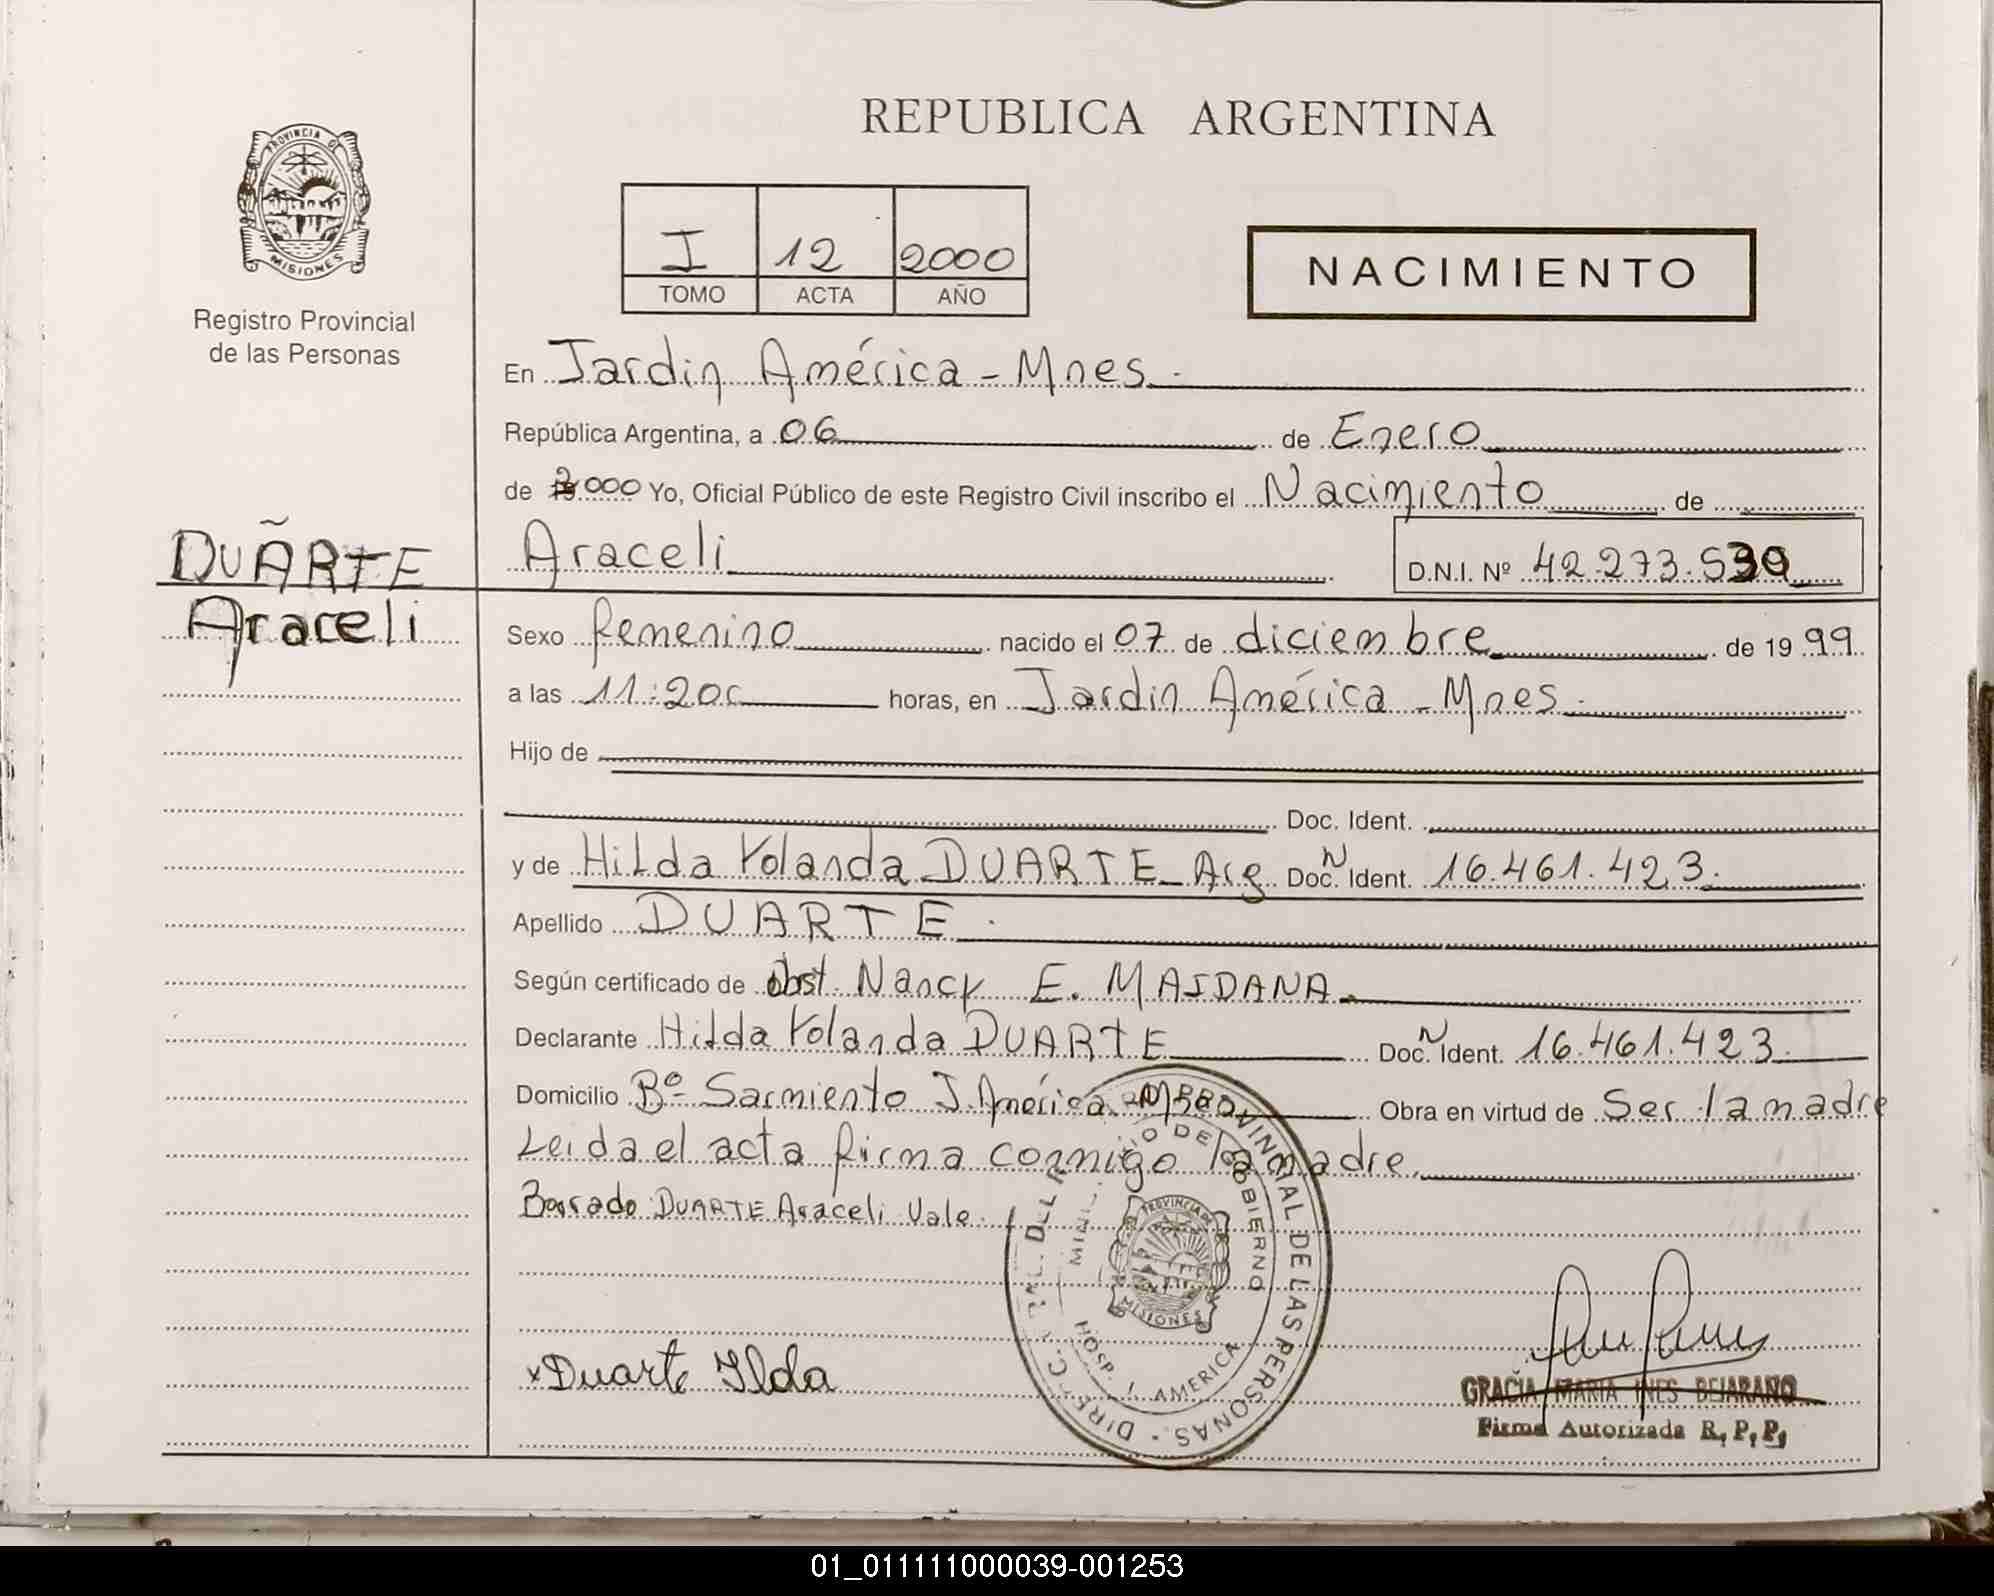 PROVINCIA DE
MISIONES
Registro Provincial
de las Personas
DUARTE
Araceli
REPUBLICA ARGENTINA
I 12 2000
TOMO ACTA AÑO
NACIMIENTO
En Jardin América - Mnes.
República Argentina, a 06 de Enero
de 2000 Yo, Oficial Público de este Registro Civil inscribo el Nacimiento de
Araceli D.N.I. Nº 42.273.530
Sexo femenino nacido el 07 de diciembre de 1999
a las 11:20 horas, en Jardin América - Mnes.
Hijo de
Doc. Ident.
y de Hilda Yolanda DUARTE Arg Doc. N Ident. 16.461.423.
Apellido DUARTE.
Según certificado de obst. Nancy E. MAIDANA.
Declarante Hilda Yolanda DUARTE Doc. N Ident. 16.461.423
Domicilio Bº Sarmiento J. América - Obra en virtud de Ser la madre
Leida el acta firma conmigo la madre.
Borrado DUARTE Araceli Vale.
DIRECC. GRAL. DEL R PROVINCIAL DE LAS PERSONAS -
MINISTERIO DE GOBIERNO
PROVINCIA DE
MISIONES
HOSP. J. AMERICA
x Duarte Ilda
GRACIA MARIA INES BEJARANO
Firma Autorizada R. P. P.
01_011111000039-001253